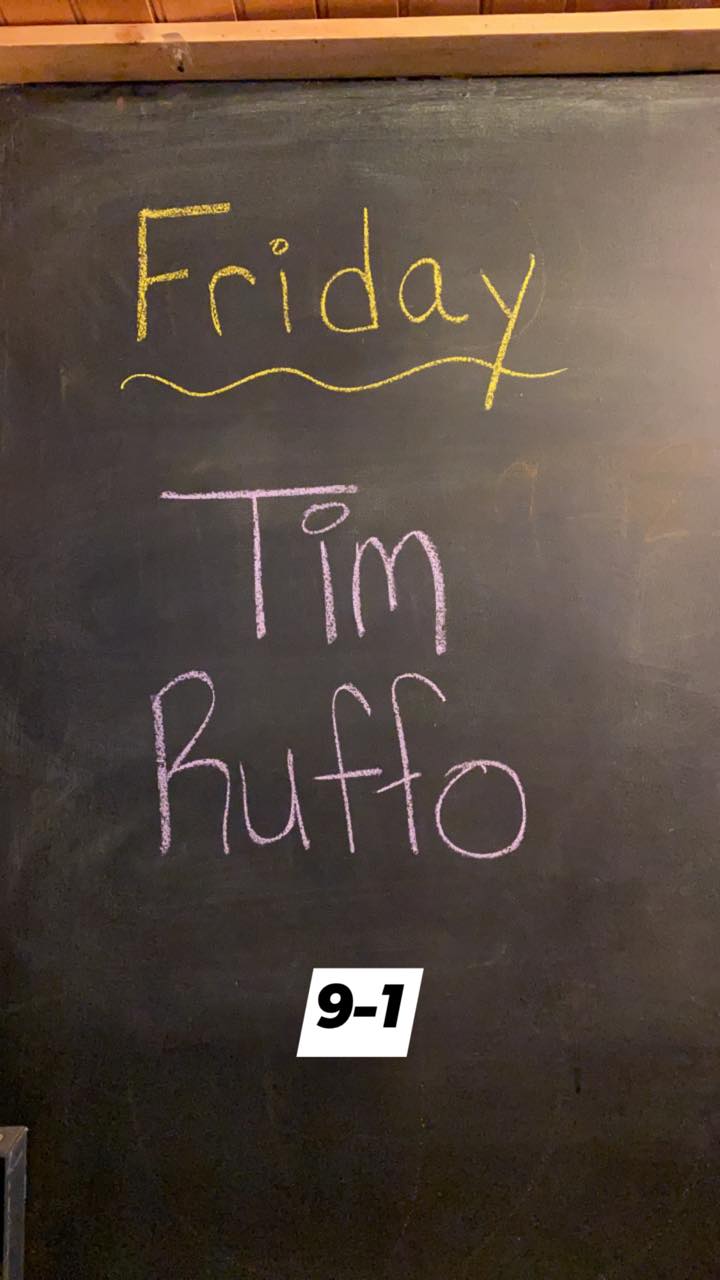 Friday
Tim
Ruffo
9-1